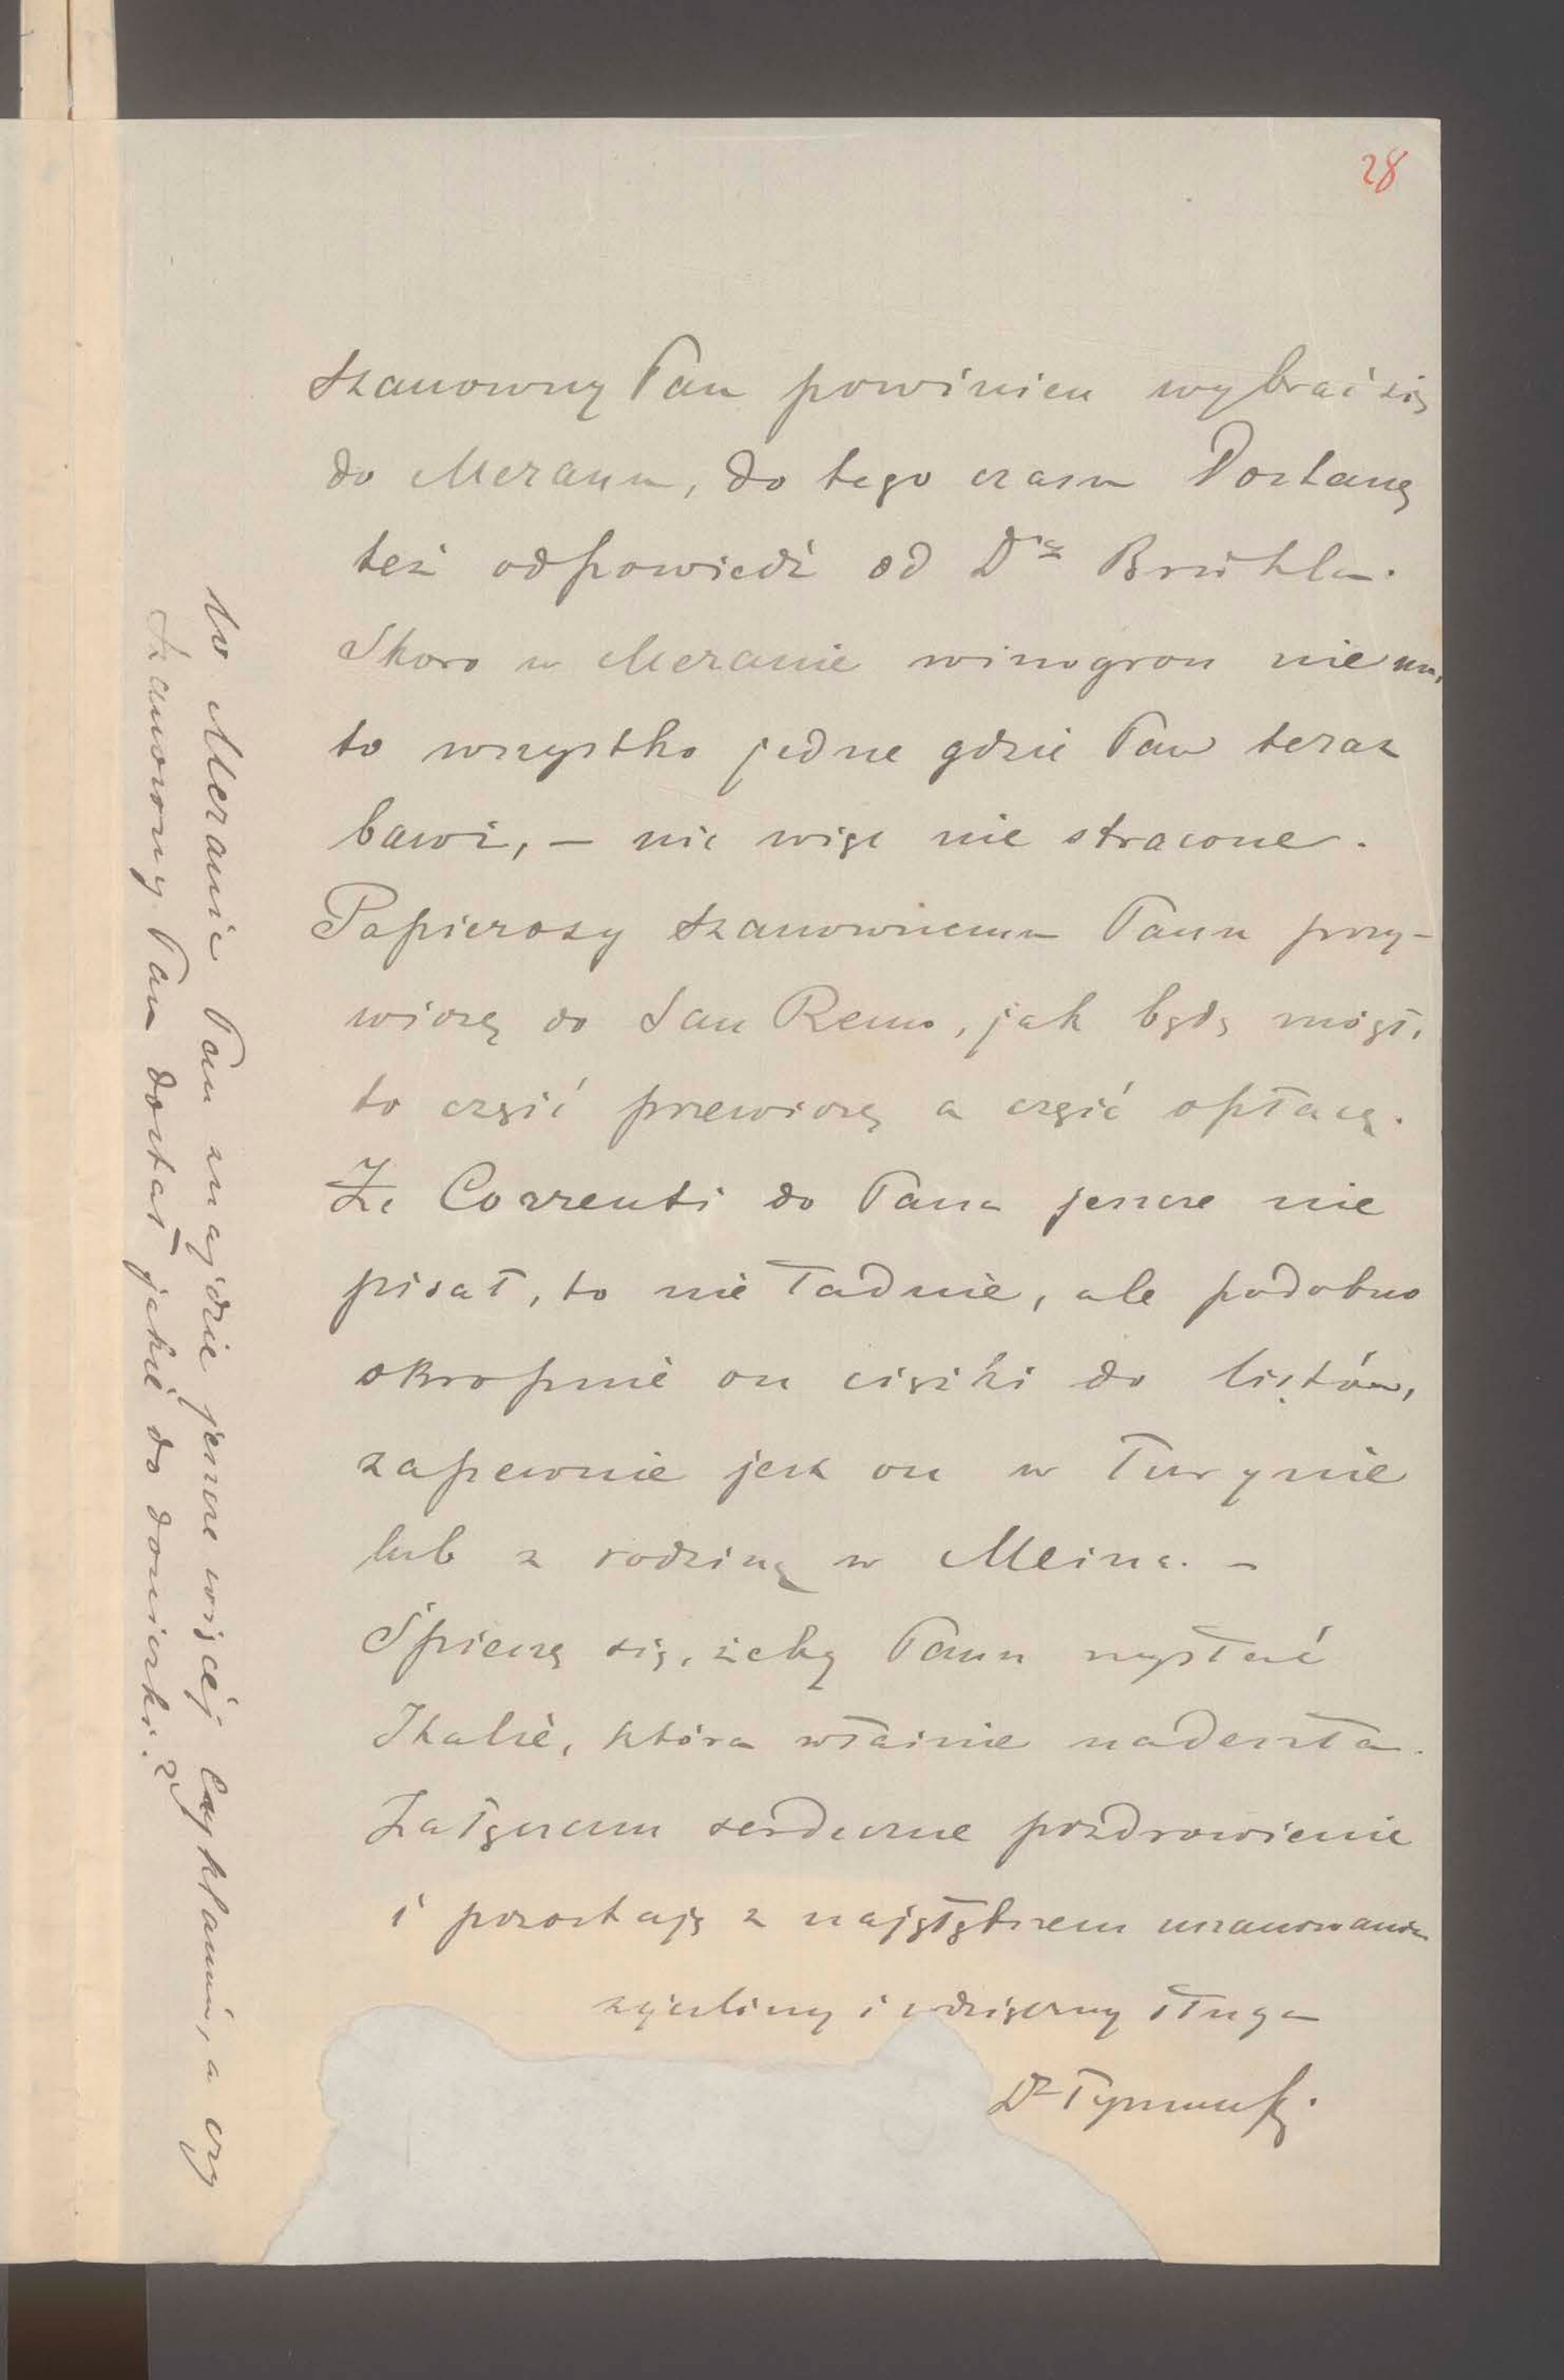 28
Szanowny Pan powinien wybrać się
do Meranu, do tego czasu Dostanę
też odpowiedź od Dra
Skoro w Meranie winogron nie ma,
to wszystko jedne gdzie Pan teraz
bawi, — nic więc nie stracone.
Papierosy Szanownemu Panu przy-
wiozę do San Remo, jak będę mógł,
to część przewiozę a część opłacę.
Że Correnti do Pana jeszcze nie
pisał, to nie ładnie, ale podobno
okropnie on ciężki do listów,
zapewnie jest on w Turynie
lub z rodziną w Meina. —
Śpieszę się, żeby Panu wysłać
Italię, która właśnie nadeszła.
Załączam serdeczne pozdrowienie
i pozostaję z najgłębszem uszanowaniem
życzliwy i wdzięczny sługa
Dr
W Meranie Pan znajdzie jeszcze więcej Cyklamów, a czy
Szanowny Pan dostał jakie do doniczki?